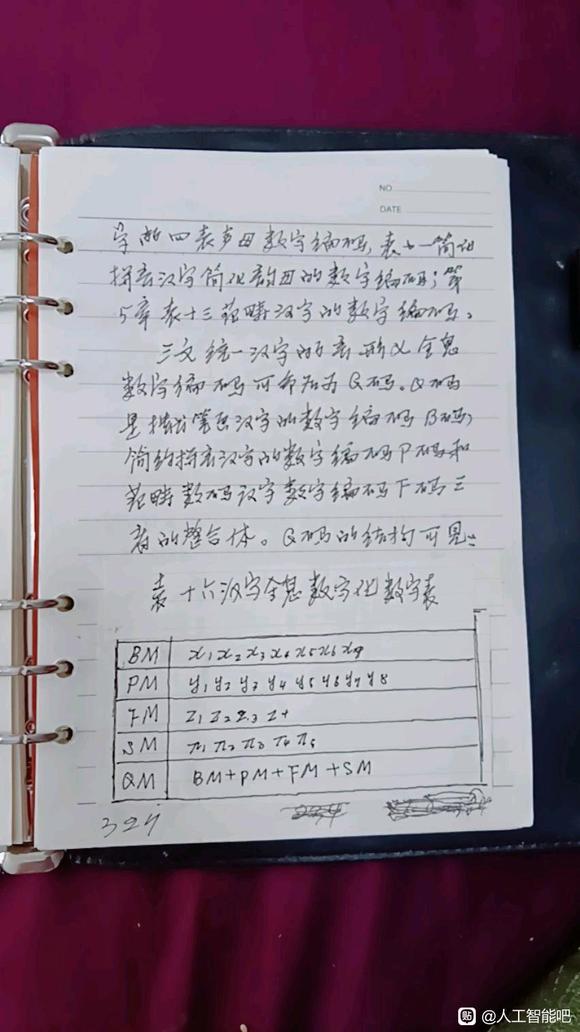 NO
DATE
字的四表声母数字编码,表十一简说
拼音汉字简化韵母的数字编码;第
5章表十三范畴汉字的数字编码。
三文统一汉字的音形义全息
数字编码可命名为Q码。Q码
是横出笔画汉字的数字编码B码,
简约拼音汉字的数字编码P码和
范畴数码汉字数字编码F码三
者的整合体。Q码的结构可见:
表十六汉字全息数字化数字表
BM x1 x2 x3 x4 x5 x6 x9
PM y1 y2 y3 y4 y5 y6 y7 y8
FM z1 z2 z3 z4
SM π1 π2 π3 π4 π5
QM BM+PM+FM+SM
贴 @人工智能吧